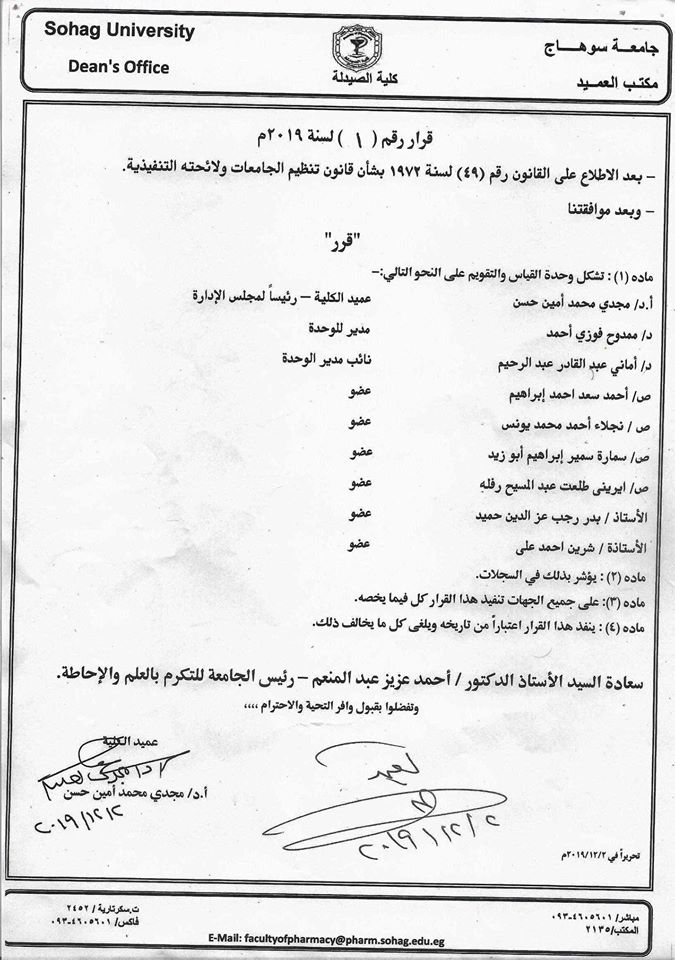 Sohag University
Dean's Office
كلية الصيدلة
جامعة سوهاج
مكتب العميد
قرار رقم ( ١ ) لسنة ٢٠١٩م
– بعد الاطلاع على القانون رقم (٤٩) لسنة ١٩٧٢ بشأن قانون تنظيم الجامعات ولائحته التنفيذية.
– وبعد موافقتنا
"قرر"
ماده (١) : تشكل وحدة القياس والتقويم على النحو التالي:–
أ.د/ مجدي محمد أمين حسن عميد الكلية – رئيساً لمجلس الإدارة
د/ ممدوح فوزي أحمد مدير للوحدة
د/ أماني عبد القادر عبد الرحيم نائب مدير الوحدة
ص/ أحمد سعد احمد إبراهيم عضو
ص / نجلاء أحمد محمد يونس عضو
ص/ سمارة سمير إبراهيم أبو زيد عضو
ص/ ايرينى طلعت عبد المسيح رفله عضو
الأستاذ / بدر رجب عز الدين حميد عضو
الأستاذة / شرين احمد على عضو
ماده (٢) : يؤشر بذلك في السجلات.
ماده (٣): على جميع الجهات تنفيد هذا القرار كل فيما يخصه.
ماده (٤) : ينفد هذا القرار اعتباراً من تاريخه ويلغى كل ما يخالف ذلك.
سعادة السيد الأستاذ الدكتور / أحمد عزيز عبد المنعم – رئيس الجامعة للتكرم بالعلم والإحاطة.
وتفضلوا بقبول وافر التحية والاحترام ,,,,
عميد الكلية
أ.د/ مجدي محمد أمين حسن
٢٠١٩/١٢/٢
٢٠١٩/١٢/٢
تحريراً في ٢٠١٩/١٢/٢م
مباشر/ ٠٩٣-٤٦٠٥٦٠١
المكتب/ ٢١٣٥
ت.سكرتارية / ٢٤٥٢
فاكس/ ٠٩٣-٤٦٠٥٦٠١
E-Mail: facultyofpharmacy@pharm.sohag.edu.eg